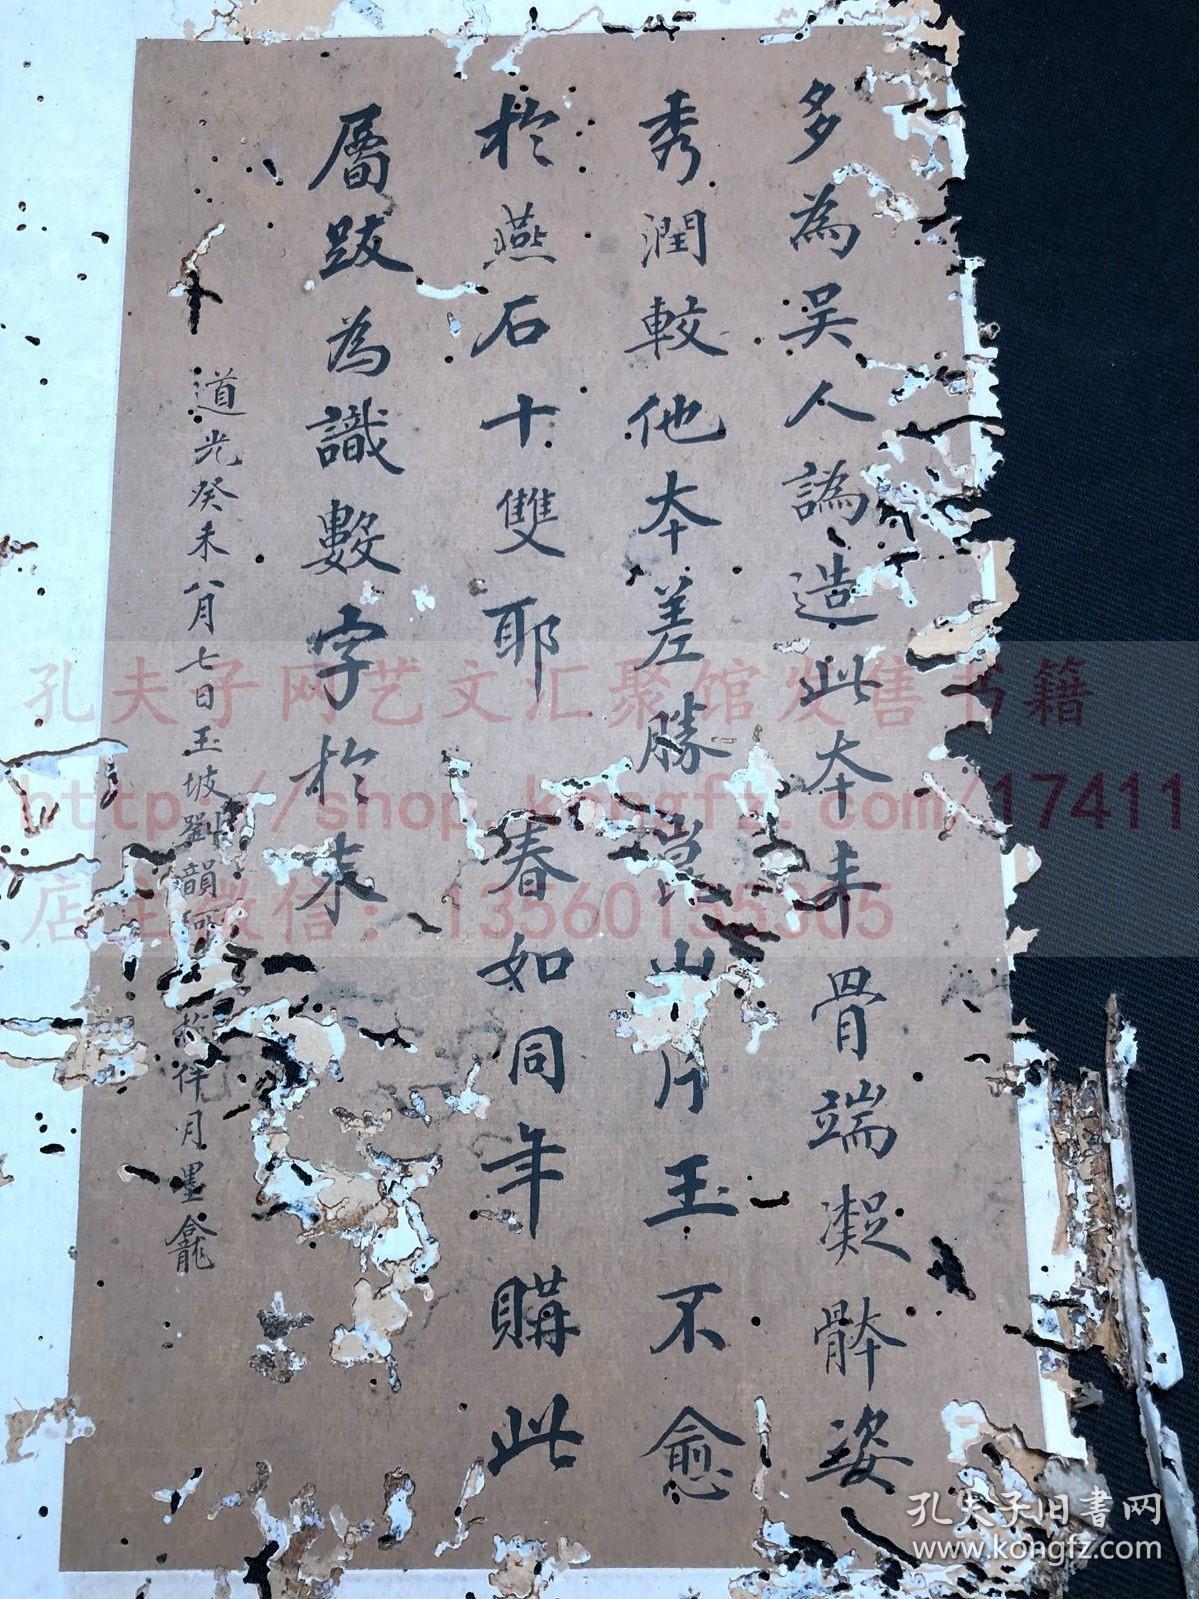 多為吴人譌造此本丰骨端凝骵姿
秀潤較他本差勝崑山片玉不愈
於燕石十雙耶 春如同年購此
屬跋為識數字於末
道光癸未八月七日玉坡劉韻珂 於伴月墨龕
孔夫子网艺文汇聚馆发售书籍
http://shop.kongfz.com/17411
店主微信：13560155305
孔夫子旧書网
www.kongfz.com